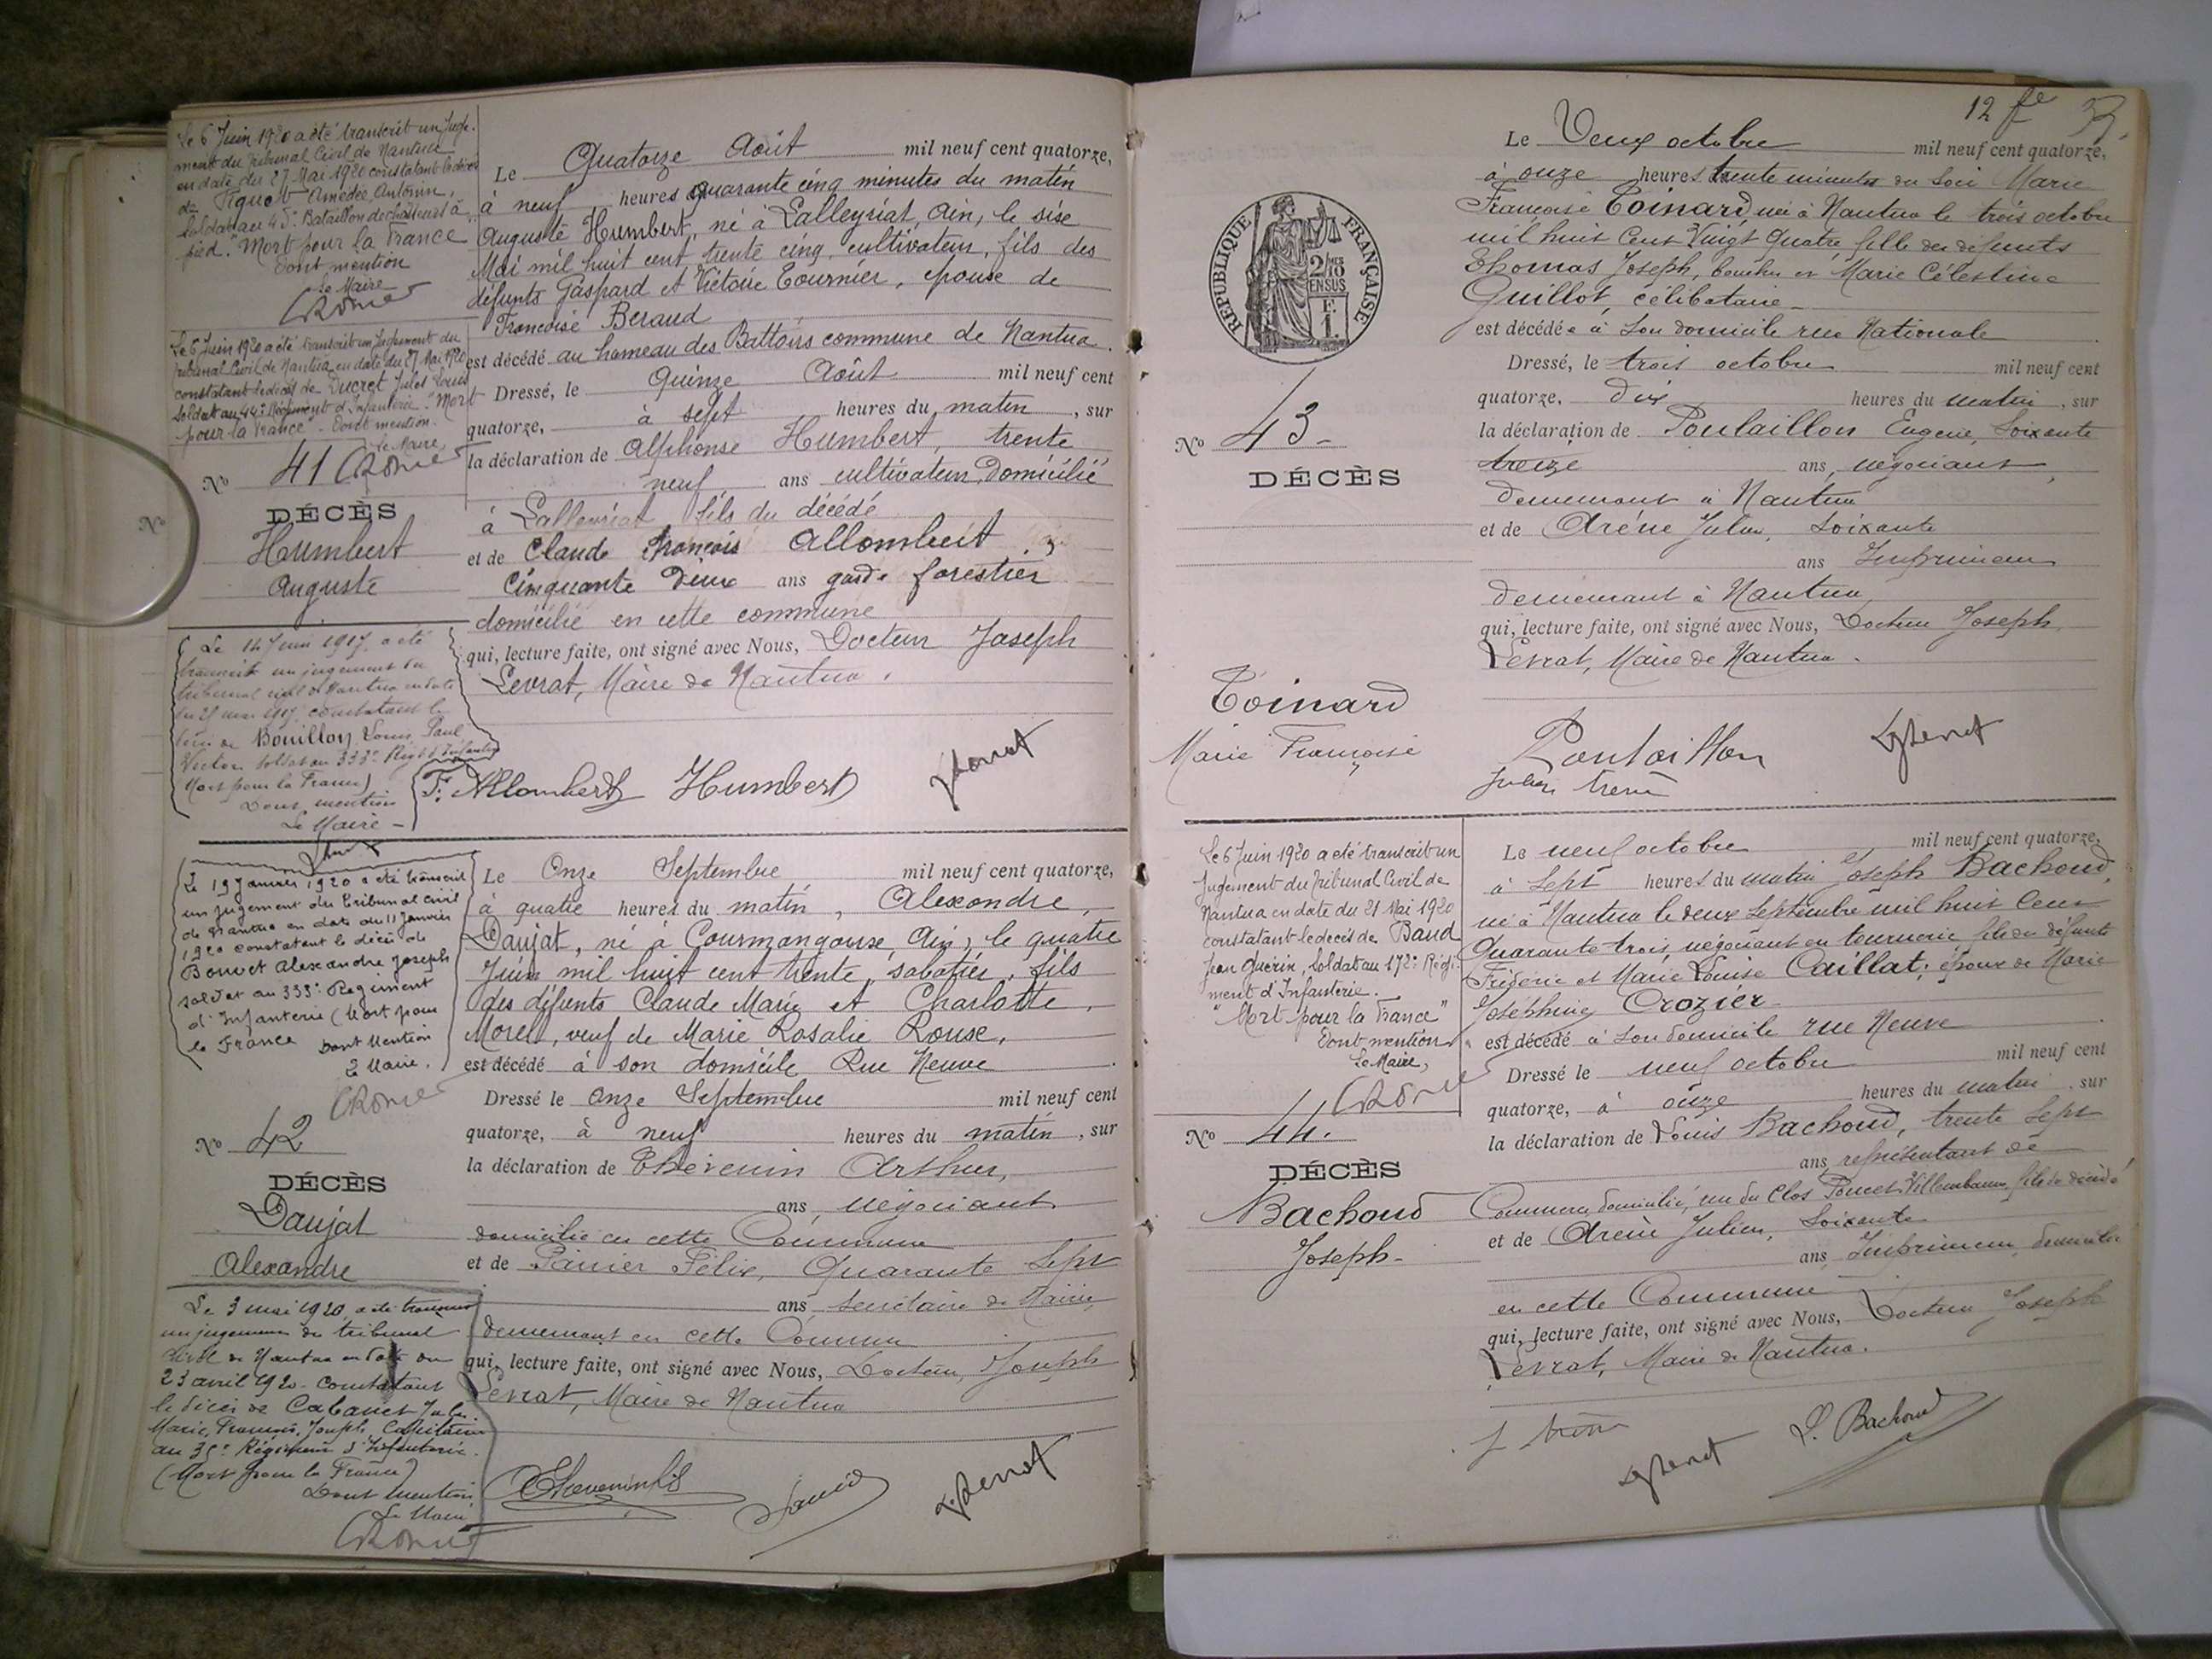 Le 6 Juin 1920 a été transcrit un Juge-
ment du Tribunal Civil de Nantua
en date du 27 Mai 1920 constatant le décès
de Piquet Amédée, Antonin,
soldat au 45e Bataillon de chasseurs à
pied. "Mort pour la France
Dont mention
Le Maire
Le 6 Juin 1920 a été transcrit un Jugement du
Tribunal Civil de Nantua en date du 27 Mai 1920
constatant le décès de Ducret Jules Louis
Soldat au 44e Régiment d'Infanterie. "Mort
pour la France" - Dont mention.
Le Maire
No 41
DÉCÈS
Humbert
Auguste
Le Quatorze Août mil neuf cent quatorze,
à neuf heures quarante cinq minutes du matin
Auguste Humbert, né à Lalleyriat, Ain, le size
Mai mil huit cent trente cinq, cultivateur, fils des
défunts Gaspard et Victoire Tournier, epouse de
Francoise Beraud
est décédé au hameau des Battoirs commune de Nantua.
Dressé, le Quinze Août mil neuf cent
quatorze, à sept heures du matin, sur
la déclaration de Alphonse Humbert, trente
neuf ans cultivateur, Domicilié
à Lalleyriat fils du décédé
et de Claude François Allombert,
Cinquante deux ans garde forestier
domicilié en cette commune
qui, lecture faite, ont signé avec Nous, Docteur Joseph
Levrat, Maire de Nantua.
Le 14 Juin 1917, a été
transcrit un jugement du
tribunal civil de Nantua en date
du 25 mai 1917, constatant le
décès de Bouillon Louis Paul
Victor soldat au 333e Rigt d'Infanterie
Mort pour la France)
Dont mention
Le Maire -
F. Allombert Humbert
Le 19 Janvier 1920 a été transcrit
un jugement du tribunal civil
de Nantua en date du 11 Janvier
1920 constatant le décès de
Bouvet Alexandre Joseph
soldat au 333e Régiment
d'Infanterie (Mort pour
la France Dont Mention
Le Maire.
No 42
DÉCÈS
Daujat
Alexandre
Le Onze Septembre mil neuf cent quatorze,
à quatre heures du matin, Alexandre,
Daujat, né à Courmangoux, Ain, le quatre
Juin mil huit cent trente, sabotier, fils
des défunts Claude Marie et Charlotte,
Morel, veuf de Marie Rosalie Rouse,
est décédé à son domicile Rue Neuve
Dressé le Onze Septembre mil neuf cent
quatorze, à neuf heures du matin, sur
la déclaration de Thévenin Arthur,
ans, négociant
domicilié en cette Commune
et de Panier Félix, Quarante Sept
ans Secrétaire de Mairie,
demeurant en cette Commune
qui, lecture faite, ont signé avec Nous, Docteur Joseph
Levrat, Maire de Nantua
Le 3 mai 1920, a été transcrit
un jugement du tribunal
civil de Nantua en date du
23 avril 1920 - constatant
le décès de Cabanet Jules
Marie, François, Joseph, Capitaine
au 35e Régiment d'Infanterie.
(Mort pour la France)
Dont mention
Le Maire
12 fe
RÉPUBLIQUE FRANÇAISE
2/10
EN SUS
F.
1.
No 43-
DÉCÈS
Toinard
Marie Françoise
Le Deux octobre mil neuf cent quatorze,
à onze heures trente minutes du soir Marie
Françoise Toinard, née à Nantua le trois octobre
mil huit Cent Vingt Quatre fille des défunts
Thomas Joseph, boucher et Marie Célestine
Guillot, célibataire -
est décédée à son domicile rue Nationale
Dressé, le trois octobre mil neuf cent
quatorze, dix heures du matin, sur
la déclaration de Poulaillon Eugène, Soixante
treize ans, négociant,
demeurant à Nantua
et de Arène Julien, Soixante
ans Imprimeur
demeurant à Nantua
qui, lecture faite, ont signé avec Nous, Docteur Joseph
Levrat, Maire de Nantua.
Poulaillon
Julien Arène
Le 6 Juin 1920 a été transcrit un
Jugement du Tribunal Civil de
Nantua en date du 21 Mai 1920
constatant le décès de Baud
Jean Guérin, Soldat au 172e Régi-
ment d'Infanterie.
"Mort pour la France"
Dont mention
Le Maire,
No 44.
DÉCÈS
Bachoud
Joseph-
Le neuf octobre mil neuf cent quatorze,
à Sept heures du matin Joseph Bachoud,
né à Nantua le deux Septembre mil huit Cent
Quarante trois, négociant en tournerie fils des défunts
Frédéric et Marie Louise Caillat; époux de Marie
Joséphine Crozier
est décédé à son domicile rue Neuve
Dressé le neuf octobre mil neuf cent
quatorze, à onze heures du matin, sur
la déclaration de Louis Bachoud, trente Sept
ans, représentant de
Commerce, domicilié, rue du Clos Poncet Villeurbanne fils du décédé
et de Arène Julien, Soixante
ans, Imprimeur, domicilié
en cette Commune
qui, lecture faite, ont signé avec Nous, Docteur Joseph
Levrat, Maire de Nantua.
J Arène
L. Bachoud